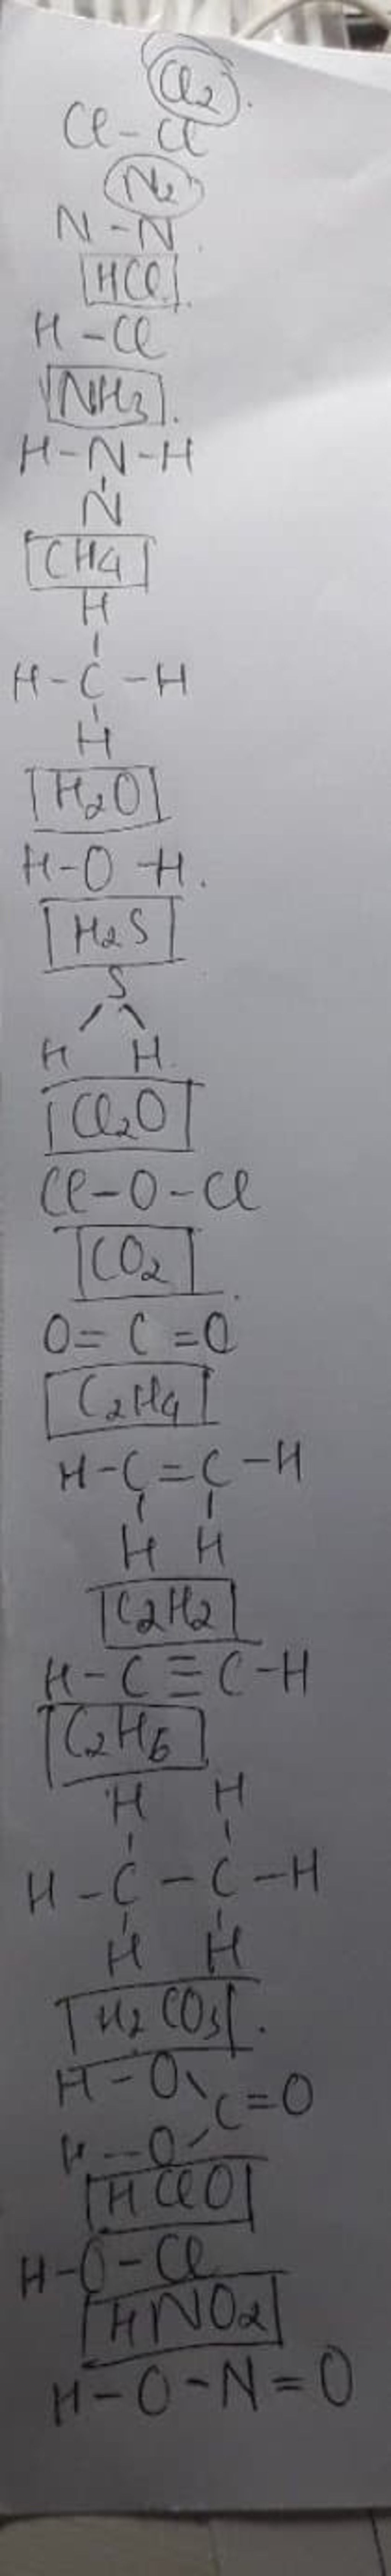 Cl2.
Cl-Cl
N2
N-N.
HCl.
H-Cl
NH3.
H-N-H
N
CH4
H
H-C-H
H
H2O
H-O-H.
H2S
S
H H.
Cl2O
Cl-O-Cl
CO2.
O=C=O
C2H4
H-C=C-H
H H
C2H2
H-C≡C-H
C2H6
H H
H-C-C-H
H H
H2CO3.
H-O
C=O
H-O
HClO
H-O-Cl
HNO2
H-O-N=O